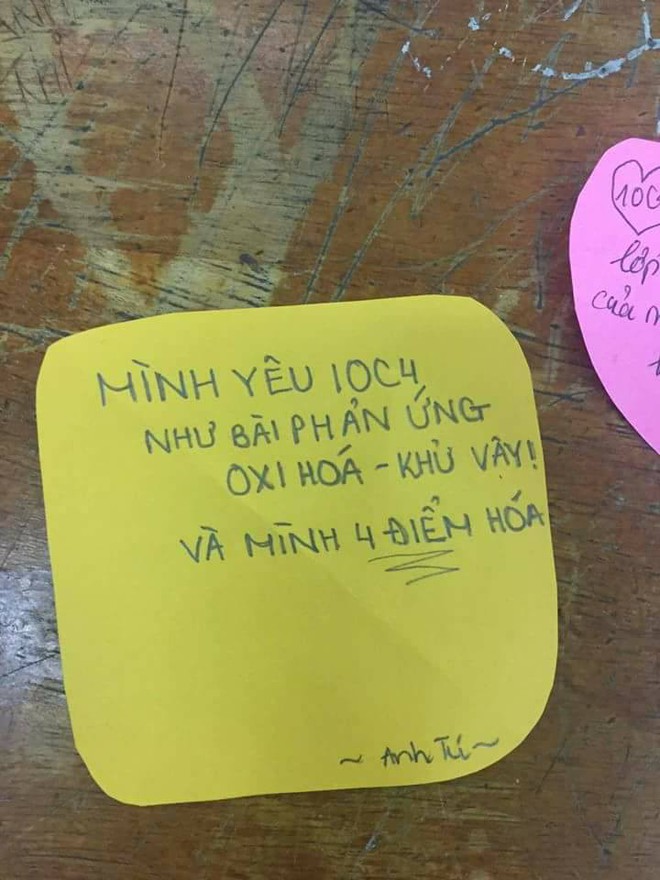 MÌNH YÊU 10C4
NHƯ BÀI PHẢN ỨNG
OXI HOÁ - KHỬ VẬY!
VÀ MÌNH 4 ĐIỂM HÓA
~ Anh Tú ~
lớp
của